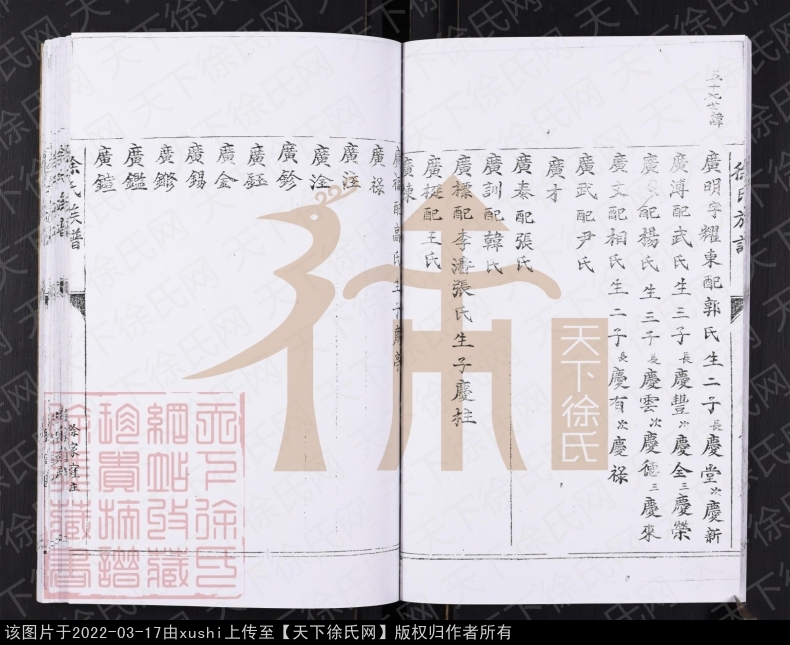 五十七世諱
徐氏族譜
廣明字耀東配郭氏生二子長慶堂次慶新
廣溥配武氏生三子長慶豐次慶全三慶榮
配楊氏生三子長慶雲次慶德三慶來
廣文配相氏生二子長慶有次慶祿
廣武配尹氏
廣才
廣泰配張氏
廣訓配韓氏
廣標配李潘張氏生子慶柱
廣挺配王氏
廣棟
配高氏生子慶亭
廣祿
廣汪
廣洤
廣鉁
廣鈺
廣金
廣錫
廣鏘
廣鑑
廣鎧
徐氏族譜
天下徐氏
天下徐氏網
天下徐氏網站收藏珍貴族譜
该图片于2022-03-17由xushi上传至【天下徐氏网】版权归作者所有